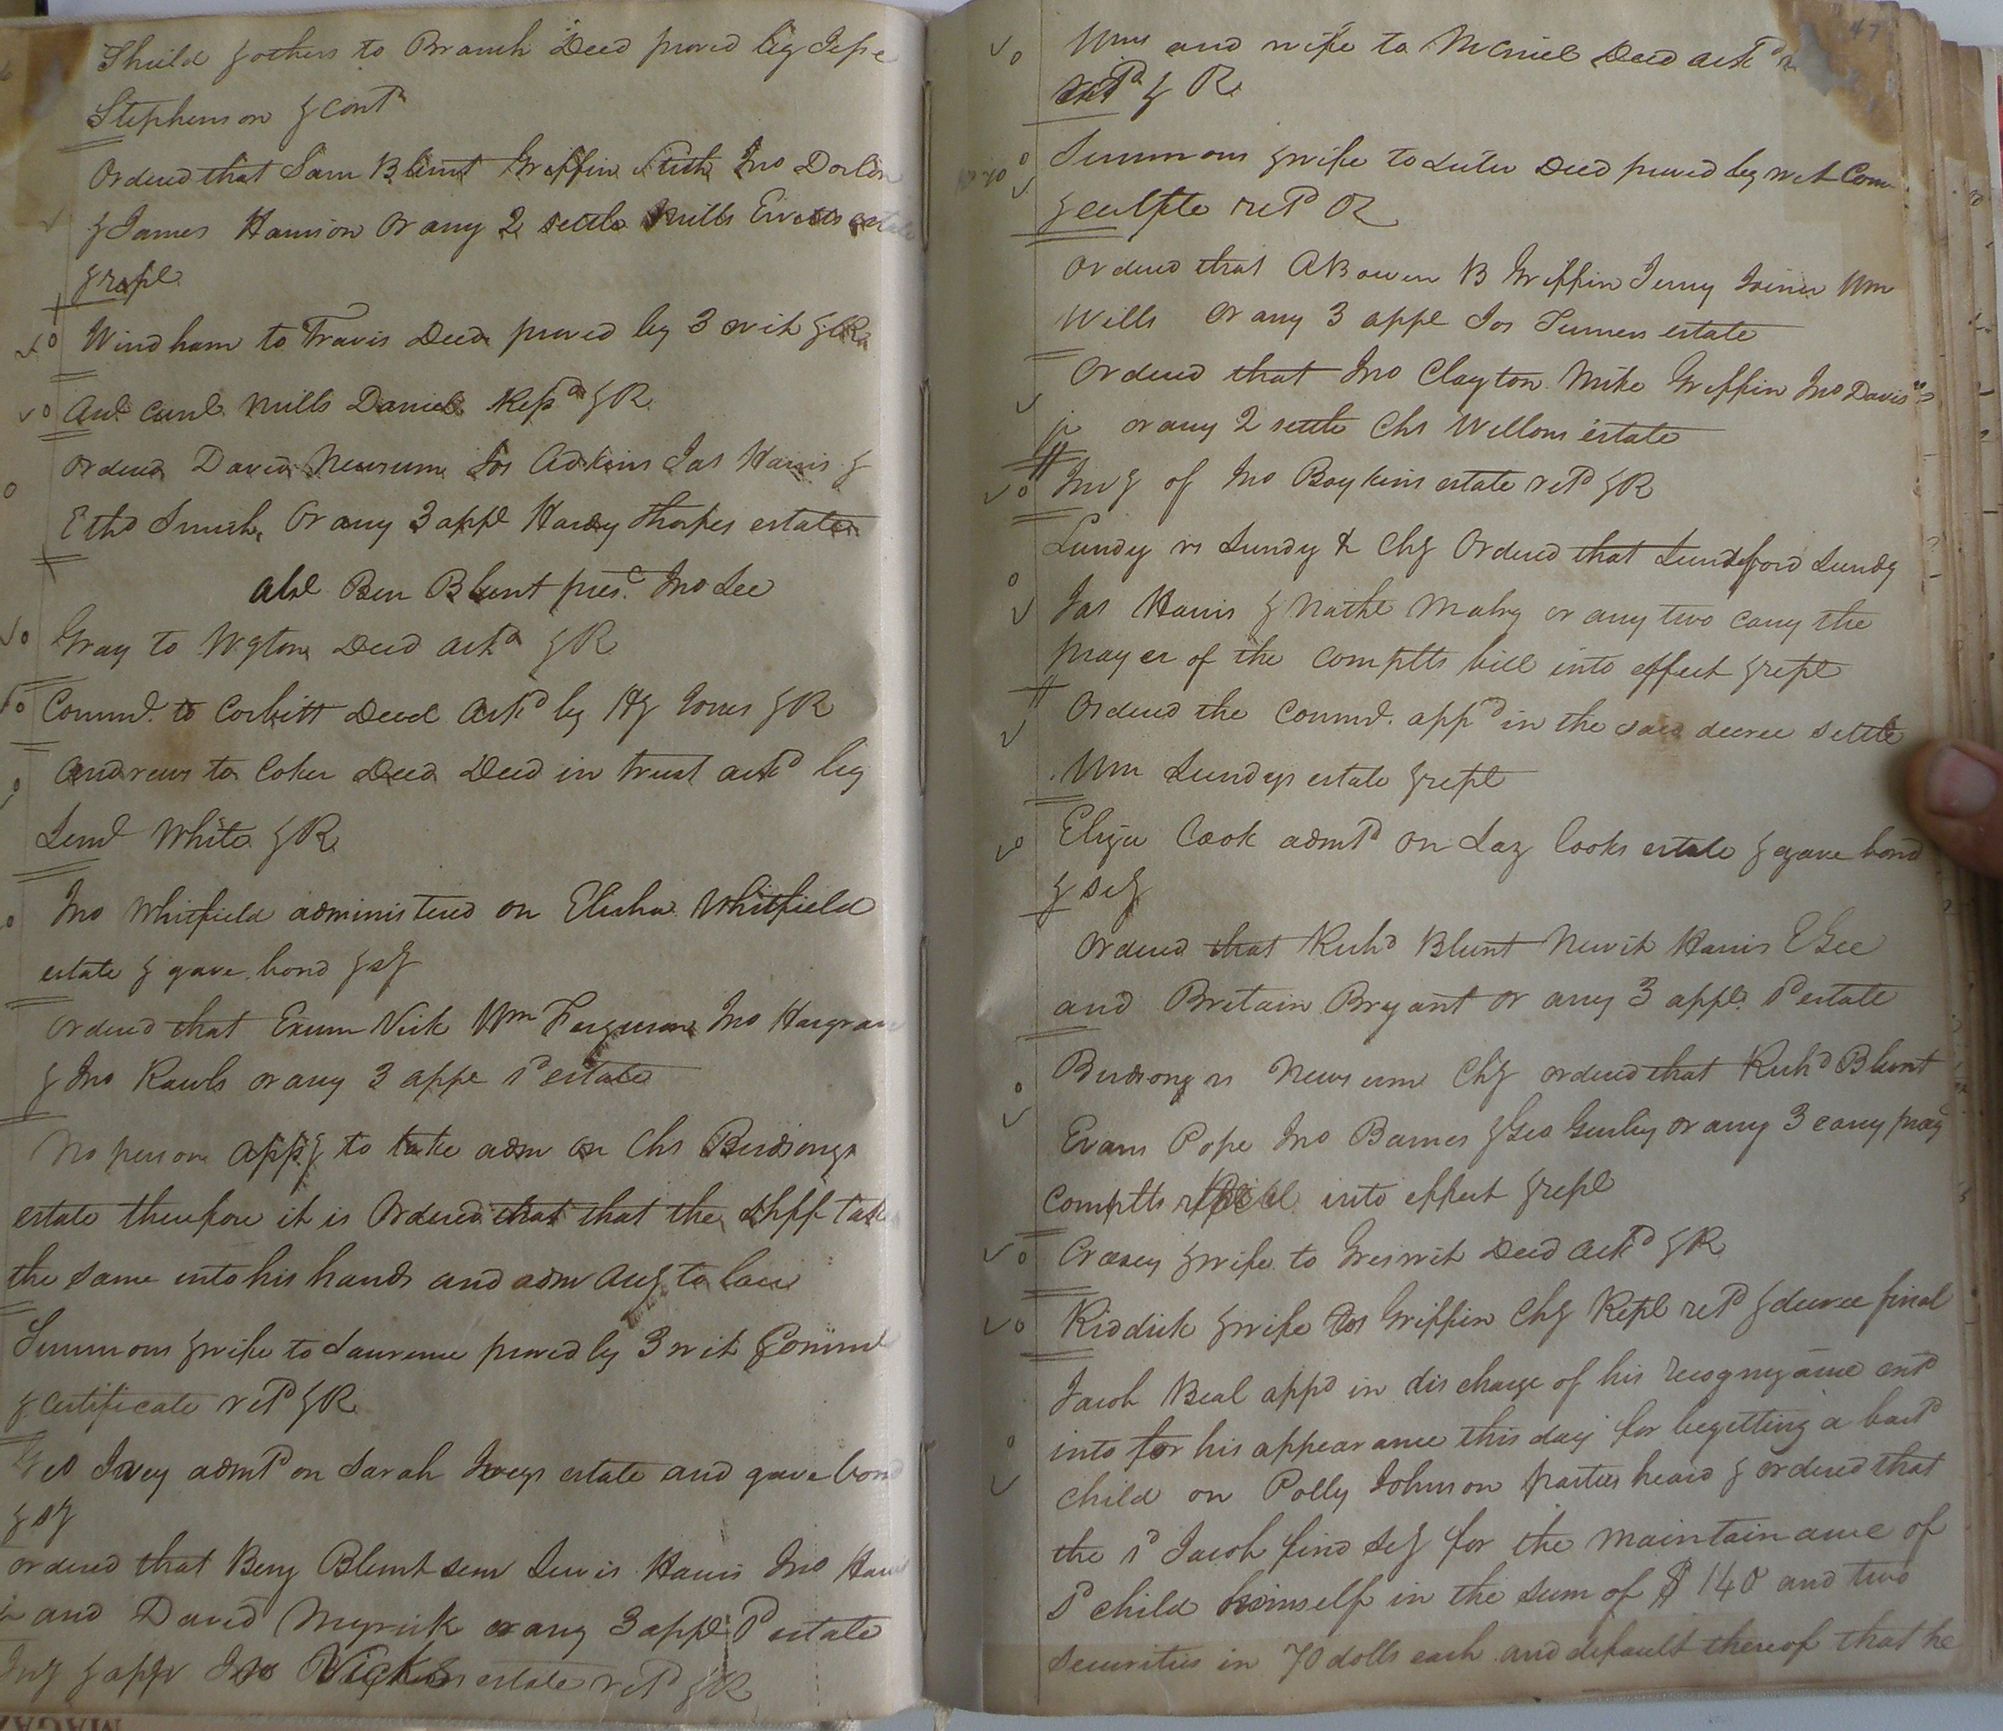 Shield & others to Branch Deed proved by Jesse
Stephenson & Contd
Ordered that Sam Blunt Griffin Stith Jno Dorlon
& James Harrison or any 2 settle Mills Ervetts estate
& repl
Windham to Travis Deed proved by 3 wit & R
Mills Daniel & R
Ordered David Newsum Jos Adkins Jas Harris &
Ethd Smith or any 3 appl Hardy Thorpes estate
Abs Ben Blunt pres. Jno Lee
Gray to Wgton Deed ackd & R
Commd. to Corbitt Deed ackd by Hy Jones & R
Andrews to Coker Deed Deed in trust ackd by
Leml White & R
Jno Whitfield administered on Elisha Whitfield
estate & gave bond & sy
Ordered that Exum Vick Wm Ferguson Jno Hargrave
& Jno Rawls or any 3 appe sd estate
No person appg to take adm on Chs Birdsongs
estate therefore it is Ordered that that the Shff take
the same into his hands and adm to law
Summons & wife to Laurence proved by 3 wit & Comml
& certificate retd & R
Geo Ivey admtd on Sarah Iveys estate and gave bond
& sy
Ordered that Beny Blunt senr Lewis Harris Jno
and David Myrick or any 3 appl sd estate
Invy & appr Jno Vicks estate retd & R
47
Wms and wife to McNiel Deed ackd
retd & R
Summons & wife to Luter Deed proved by wit Com
& certfte retd R
Ordered that A Bowen B Griffin Jerry Joiner Wm
Wills or any 3 appl Jos Turners estate
Ordered that Jno Clayton Mike Griffin Jno Davis
jr or any 2 settle Chs Wellons estate
Invy of Jno Boykins estate retd & R
Lundy vs Lundy & Chy Ordered that Lundsford Lundy
Jas Harris & Nathl Mabry or any two carry the
prayer of the complts bill into effect & repl
Ordered the Commd. appd in the said decree settle
Wm Lundys estate & repl
Eliza Cook admtd on Laz Cooks estate & gave bond
& sey
Ordered that Richd Blunt Newit Harris E Gee
and Britain Bryant or any 3 appl. sd estate
Birdsong vs Newsum Chy ordered that Richd Blunt
Evans Pope Jno Barnes & Geo Gurley or any 3 carry pray
complts into effect & repl
Crasey & wife to Greswit Deed ackd & R
Riddick & wife vs Griffin Chy Repl retd & decree final
Jacob Beal appd in discharge of his recognyance entd
into for his appearance this day for begetting a bastd
child on Polly Johnson parties heard & ordered that
the sd Jacob find sey for the maintainance of
sd child himself in the sum of $140 and two
securities in 70 dolls each and default thereof that he